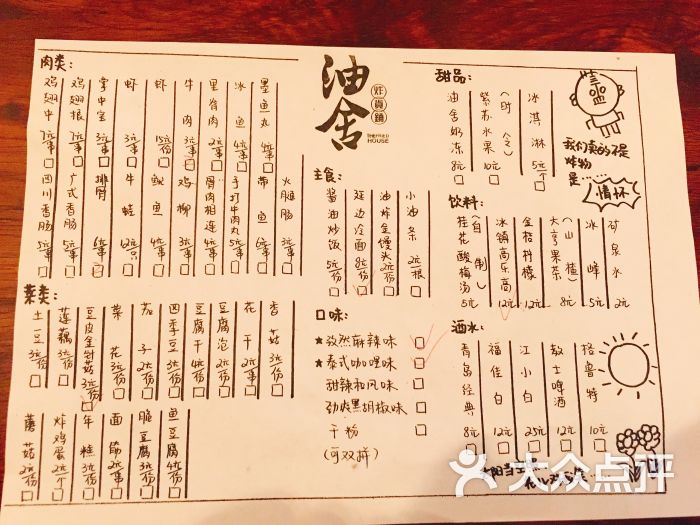 油舍
炸貨鋪
THEFRIED
HOUSE
肉类:
鸡翅中 7元/串
鸡翅根 7元/串
掌中宝 3元/串
虾 3元/串
虾 15元/份
牛肉 3元/串
里脊肉 2元/串
冰鱼 4元/串
墨鱼丸 4元/串
四川香肠 5元/串
广式香肠 5元/串
排骨 6元/串
牛蛙 12元/只
鱿鱼 4元/串
鸡柳 3元/串
骨肉相连 4元/串
手打牛肉丸 5元/串
带鱼 6元/串
火腿肠 3元/串
素类:
土豆 3元/份
莲藕 3元/份
豆皮金针菇 3元/份
菜花 3元/份
茄子 2元/份
四季豆 3元/份
豆腐干 4元/份
豆腐泡 2元/份
花干 2元/串
香菇 3元/份
蘑菇 2元/份
炸鸡蛋 2元/个
年糕 3元/份
面筋 2元/串
脆豆腐 3元/份
鱼豆腐 4元/份
主食:
酱油炒饭 5元/份
延边冷面 8元/份
油炸金馒头 2元/份
小油条 2元/根
口味:
★孜然麻辣味
★泰式咖喱味
甜辣和风味
劲爽黑胡椒味
干粉
(可双拼)
甜品:
油舍奶冻 8元
紫苏水果 10元
(时令)
冰淇淋 5元/个
我们卖的不是
炸物
是……
情怀
饮料:
桂花酸梅汤 5元
(自制)
冰镇高乐高 12元
金桔柠檬 12元
大亨果茶 8元
(山楂)
冰峰 5元
矿泉水 2元
酒水:
青岛经典 8元
福佳白 12元
江小白 25元
教士啤酒 12元
格鲁特 10元
大众点评